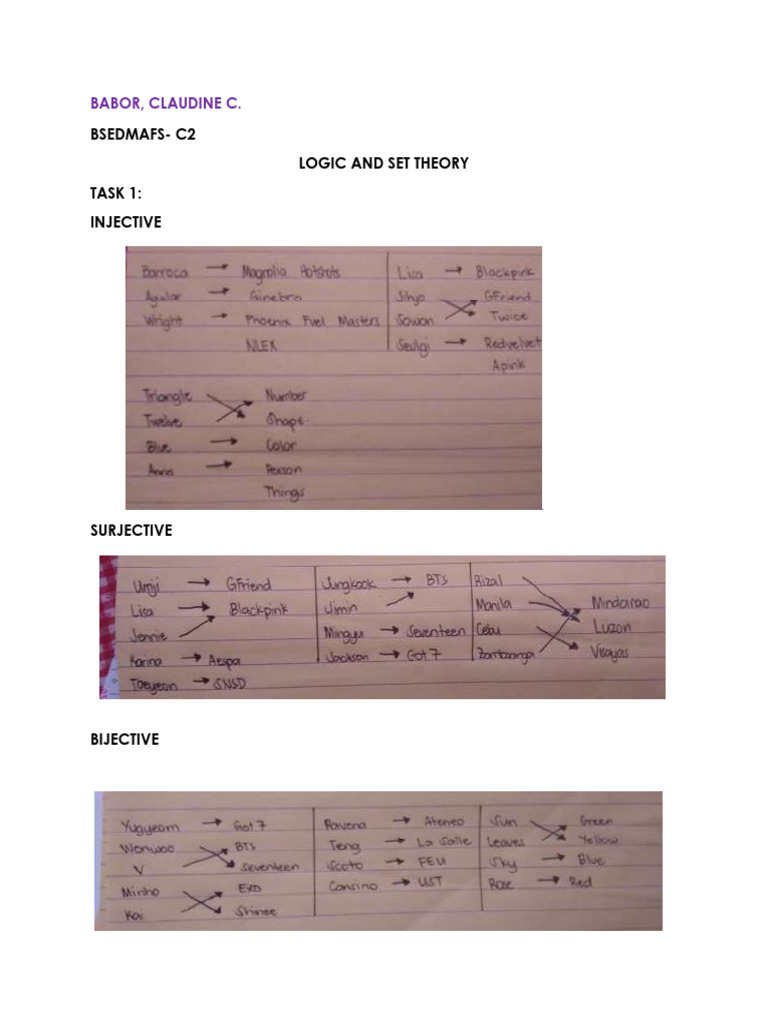 BABOR, CLAUDINE C.
BSEDMAFS- C2
LOGIC AND SET THEORY
TASK 1:
INJECTIVE
Barroca → Magnolia Hotshots
Aguilar → Ginebra
Wright → Phoenix Fuel Masters
NLEX
Lisa → Blackpink
Jihyo GFriend
Sowon Twice
Seulgi → Redvelvet
Apink
Triangle Number
Twelve Shape
Blue → Color
Anna → Person
Things
SURJECTIVE
Umji → GFriend
Lisa → Blackpink
Jennie
Karina → Aespa
Taeyeon → SNSD
Jungkook → BTS
Jimin
Mingyu → Seventeen
Jackson → Got 7
Rizal
Manila Mindanao
Cebu Luzon
Zamboanga Visayas
BIJECTIVE
Yugyeom → Got 7
Wonwoo BTS
V Seventeen
Minho EXO
Kai Shinee
Ravena → Ateneo
Teng → La Salle
Scoto → FEU
Cansino → UST
Sun Green
Leaves Yellow
Sky → Blue
Rose → Red